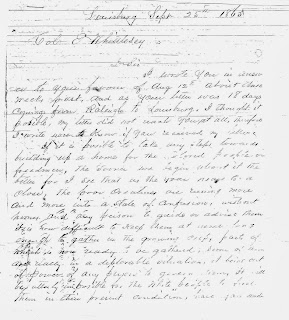 Louisburg Sept 25th 1865
Col E Whittlesey
Dsir
I wrote you in answer
to your favour of Aug 12th about three
weeks past, and as your letter was 18 days
coming from Raleigh to Louisburg. I thought it
posible, my letter did not reach you at all, therefore
I write now to know if you received my letter
If it is posible to take any steps towards
building up a home for the colored people or
freedmen, the sooner we begin about it the
better for I see that as the season nears to a
close, the poor creatures are runing more
and more into a state of confusion, without
homes and any person to guide or advise them
it is now difficult to keep them at home long
enough to gather in the growing crop, part of
which is now ready to be gathered, some of them
are really in a deplorable situation, it being out
of power of any person to govern them, it will
be utterly imposible for the white people to
them in their present condition,